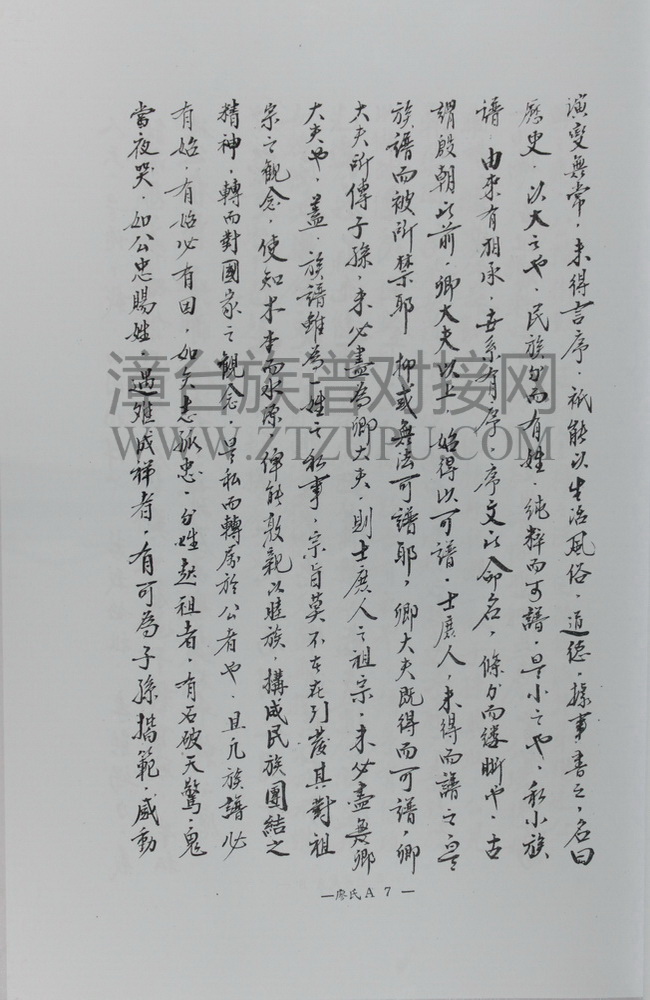 演變無常,未得言序,祇能以生活風俗,道德,據事書之,名曰
歷史,以大之也,民族分而有姓,純粹而可譜,是小之也,私小族
譜,由來有相承,世系有序,序文以命名,條分而縷晰也,古
謂殷朝以前,卿大夫以上,始得以可譜,士庶人,未得而譜之,是
族譜而被所禁耶,抑或無法可譜耶,卿大夫既得而可譜,卿
大夫所傳子孫,未必盡為卿大夫,則士庶人之祖宗,未必盡無卿
大夫也,蓋,族譜雖為一姓之私事,宗旨莫不在在引發其對祖
宗之觀念,使知木本而水源,俾能敦親以睦族,構成民族團結之
精神,轉而對國家之觀念,是私而轉屬於公者也,且凡族譜必
有始,有始必有因,如矢志孤忠,分姓起祖者,有石破天驚,鬼
當夜哭,如公忠賜姓,遇難成祥者,有可為子孫楷範,感動
—廖氏A 7 —
漳台族谱对接网
WWW.ZTZUPU.COM